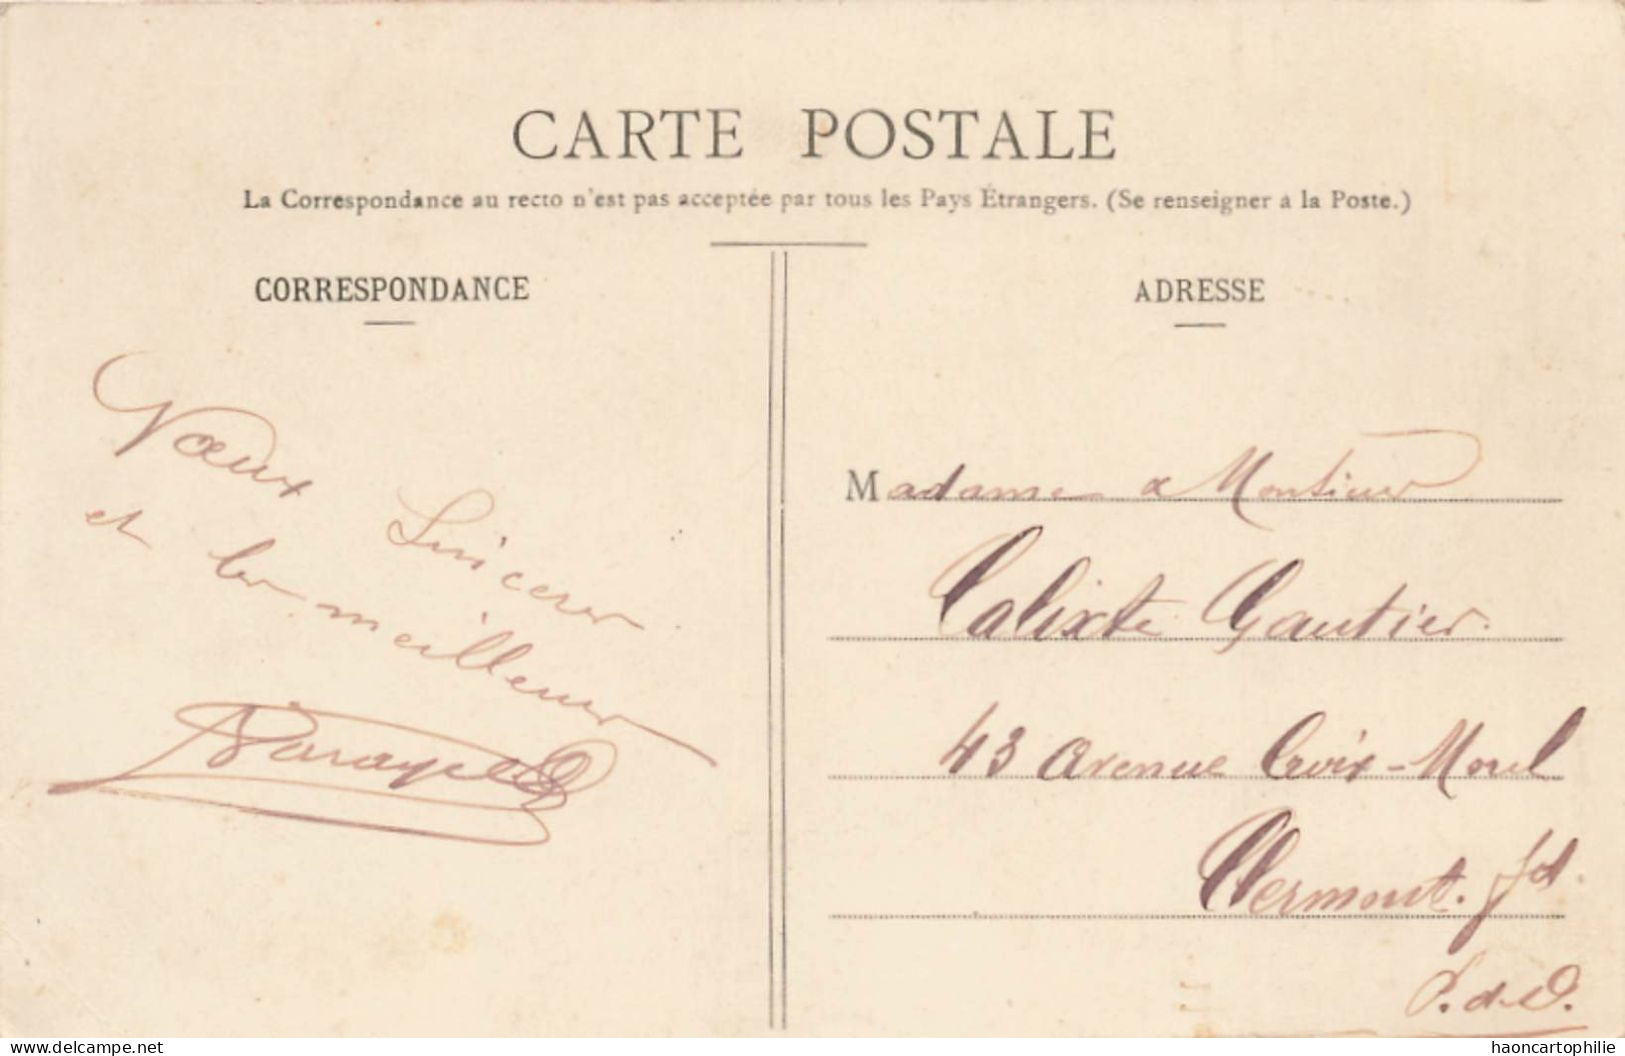 CARTE POSTALE
La Correspondance au recto n'est pas acceptée par tous les Pays Étrangers. (Se renseigner à la Poste.)
CORRESPONDANCE
Vœux Sincères
et les meilleurs
ADRESSE
Madame & Monsieur
Calixte Gautier.
43 Avenue Croix-Morel
Clermont. fd.
P.-de-D.
www.delcampe.net
haoncartophilie